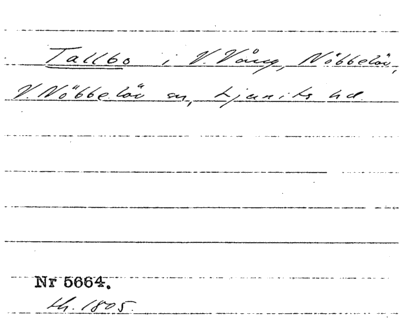 Tallbo i V. Vång, Nöbbelöv,
V. Nöbbelöv sn, Ljunits hd
Nr 5664.
th. 1805.